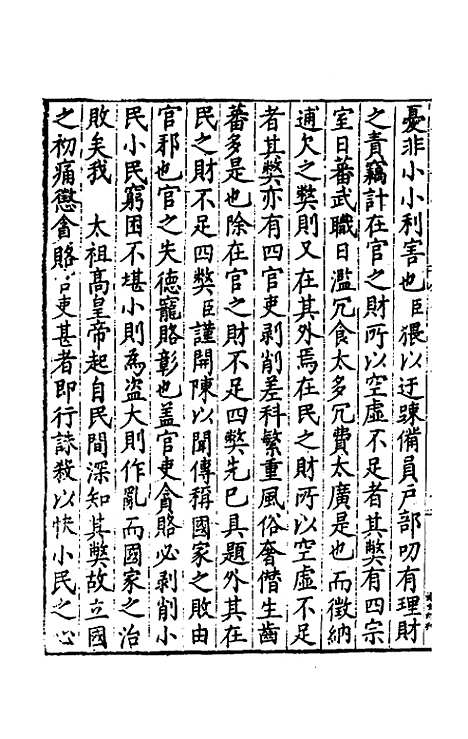 憂非小小利害也臣猥以迂踈備員戶部叨有理財
之責竊計在官之財所以空虛不足者其弊有四宗
室日蕃武職日濫冗食太多冗費太廣是也而徵納
逋欠之弊則又在其外焉在民之財所以空虛不足
者其弊亦有四官吏剥削差科繁重風俗奢僣生齒
蕃多是也除在官之財不足四弊先已具題外其在
民之財不足四弊臣謹開陳以聞傳稱國家之敗由
官邪也官之失德寵賂彰也盖官吏貪賂必剥削小
民小民窮困不堪小則為盗大則作亂而國家之治
敗矣我　太祖高皇帝起自民間深知其弊故立國
之初痛懲貪賂官吏甚者即行誅殺以快小民之心